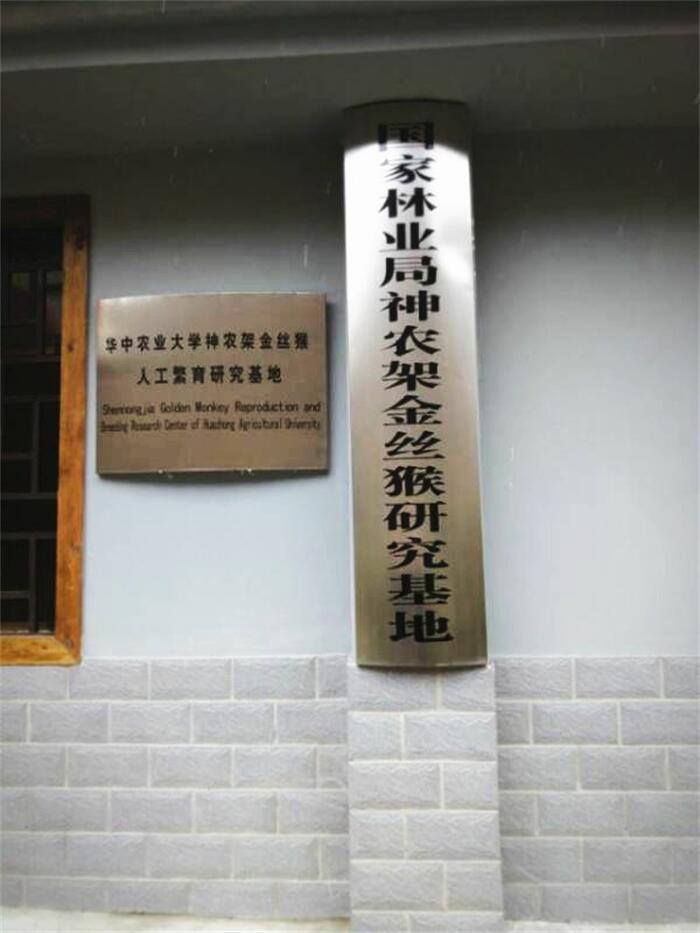 华中农业大学神农架金丝猴
人工繁育研究基地
Shennongjia Golden Monkey Reproduction and
Breeding Research Center of Huazhong Agricultural University
国家林业局神农架金丝猴研究基地